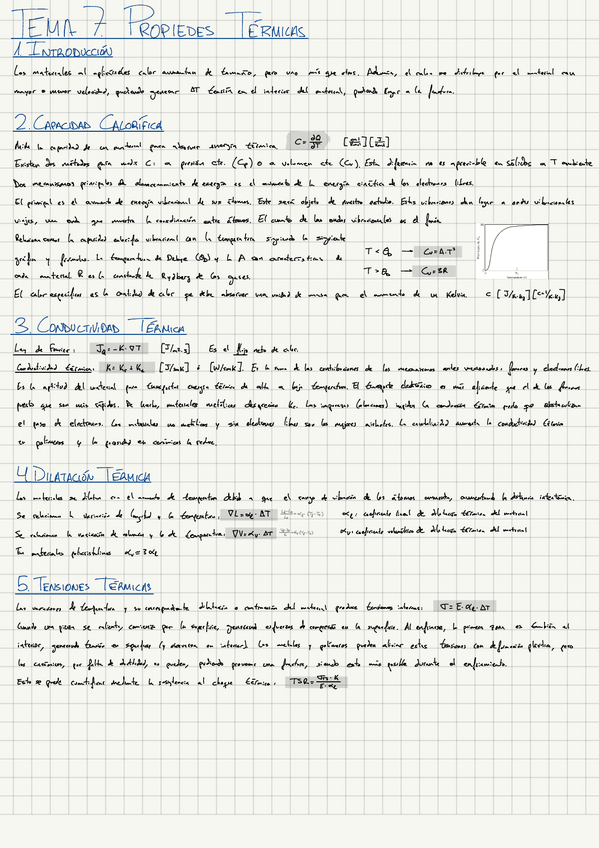 TEMA 7. PROPIEDES TÉRMICAS
1. INTRODUCCIÓN
Los materiales al aplicárseles calor aumentan de tamaño, pero uno más que otros. Además, el calor se distribuye por el material con
mayor o menor velocidad, pudiendo generar ΔT tensión en el interior del material, pudiendo llegar a la fractura.
2. CAPACIDAD CALORÍFICA
Mide la capacidad de un material para absorber energía térmica. C = ∂Q/∂T
Existen dos métodos para medir C: a presión cte. (Cp) o a volumen cte (Cv). Esta diferencia no es apreciable en sólidos a T ambiente
Dos mecanismos principales de almacenamiento de energía es el aumento de la energía cinética de los electrones libres.
El principal es el aumento de energía vibracional de sus átomos. Este será objeto de nuestro estudio. Estas vibraciones dan lugar a ondas vibracionales
viajes, una onda que muestra la coordinación entre átomos. El cuanto de las ondas vibracionales es el fonón.
Relacionamos la capacidad calorífica vibracional con la temperatura siguiendo la siguiente
gráfica y fórmulas. La temperatura de Debye (θD) y la A son características de
cada material. R es la constante de Rydberg de los gases.
T < θD → Cv = A·T³
T > θD → Cv = 3R
El calor específico es la cantidad de calor que debe absorber una unidad de masa para el aumento de un Kelvin. c [J/K·kg] [cal/K·kg]
3. CONDUCTIVIDAD TÉRMICA
Ley de Fourier: JQ = -K·∇T [J/m2·s] Es el flujo neto de calor.
Conductividad térmica: K = Kv + Ke [J/smK] ó [W/mK]. Es la suma de las contribuciones de los mecanismos antes mencionados: fonones y electrones libres.
Es la aptitud del material para transportar energía térmica de alta a baja temperatura. El transporte electrónico es más eficiente que el de los fonones
puesto que son más rápidos. De hecho, materiales metálicos desprecian Kv. Las impurezas (aleaciones) impiden la conducción térmica puesto que obstaculizan
el paso de electrones. Los materiales no metálicos y sin electrones libres son los mejores aislantes. La cristalinidad aumenta la conductividad térmica
en polímeros y la porosidad en cerámicos la reduce.
4. DILATACIÓN TÉRMICA
Los materiales se dilatan con el aumento de temperatura debido a que el rango de vibración de los átomos aumenta, aumentando la distancia interatómica.
Se relaciona la variación de longitud y la temperatura: ∇L = αℓ·ΔT αℓ: coeficiente lineal de dilatación térmica del material
Se relaciona la variación de volumen y la de temperatura: ∇V = αv·ΔT αv: coeficiente volumétrico de dilatación térmica del material
En materiales policristalinos αv = 3αℓ
5. TENSIONES TÉRMICAS
Las variaciones de temperatura y su correspondiente dilatación o contracción del material produce tensiones internas: σ = E·αℓ·ΔT
Cuando una pieza se calienta, comienza por la superficie, generando esfuerzos de compresión en la superficie. Al enfriarse, la primera zona es también al
interior, generando tensión en superficie (y decrecen en interior). Los metales y polímeros pueden aliviar estas tensiones con deformación plástica, pero
los cerámicos, por falta de ductilidad, no pueden, pudiendo provocar una fractura, siendo esto más posible durante el enfriamiento.
Esto se puede cuantificar mediante la resistencia al choque térmico: TSR = σm·K/E·αℓ